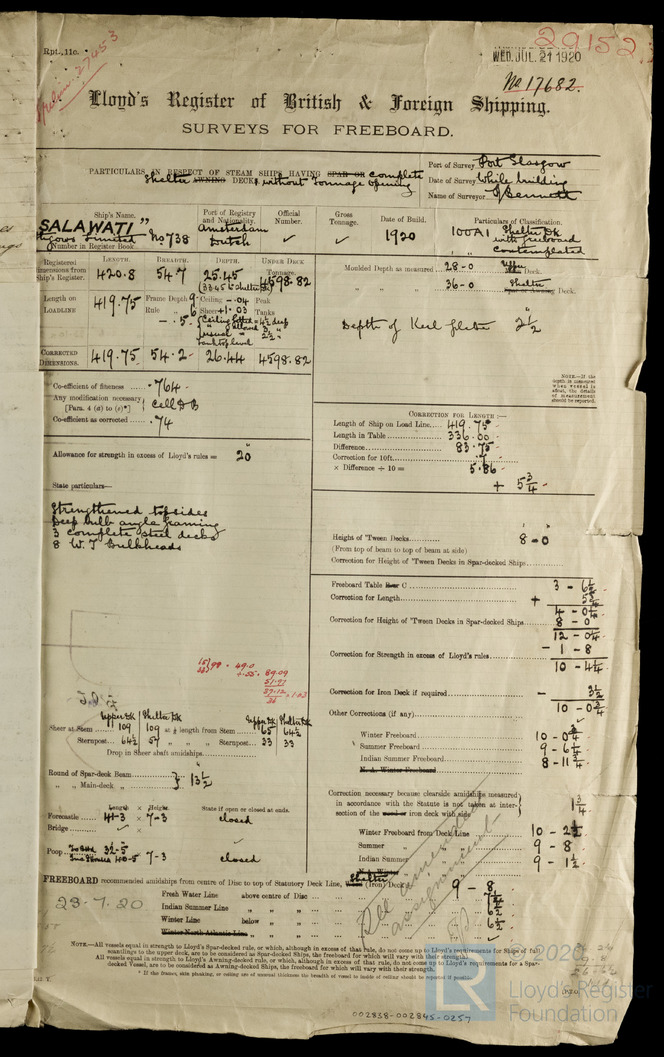 Rpt. 11c.
29152
WED. JUL. 21 1920
No 17682.
Lloyd's Register of British & Foreign Shipping.
SURVEYS FOR FREEBOARD.
PARTICULARS IN RESPECT OF STEAM SHIPS HAVING SPAR OR complete
Shelter AWNING DECKS without Tonnage opening
Port of Survey Port Glasgow
Date of Survey While building
Name of Surveyor J Bennett
Ship's Name. Port of Registry and Nationality. Official Number. Gross Tonnage. Date of Build. Particulars of Classification.
"SALAWATI" Amsterdam 1920 100A1 Shelter Dk
No 738 Dutch with freeboard
Number in Register Book contemplated
Registered Dimensions from Ship's Register. LENGTH. BREADTH. DEPTH. UNDER DECK TONNAGE.
420.8 54.7 25.45 4598.82
Moulded Depth as measured 28-0 Upper Deck.
36-0 Shelter Spar or Awning Deck.
Length on LOADLINE 419.75 Frame Depth 9" Ceiling -.04 Peak
Rule 6 Sheer +1.03 Tanks
-.5
Depth of Keel plate 2½
CORRECTED DIMENSIONS. 419.75 54.2 26.44 4598.82
NOTE.—If the depth is measured when vessel is afloat, the details of measurement should be reported.
Co-efficient of fineness .764
Any modification necessary [Para. 4 (d) to (e)*] Cell D B
Co-efficient as corrected .74
CORRECTION FOR LENGTH :—
Length of Ship on Load Line 419.75
Length in Table 336.00
Difference 83.75
Correction for 10ft. .7
× Difference ÷ 10 = 5.86
+ 5¾
Allowance for strength in excess of Lloyd's rules = 20"
State particulars—
Strengthened topsides
Deep bulb angle framing
3 complete steel decks
8 W.T Bulkheads
Height of 'Tween Decks 8-0
(From top of beam to top of beam at side)
Correction for Height of 'Tween Decks in Spar-decked Ships
Freeboard Table C 3 - 6½
Correction for Length + 5¾
4 - 0¼
Correction for Height of 'Tween Decks in Spar-decked Ships 8 - 0
12 - 0¼
Correction for Strength in excess of Lloyd's rules - 1 - 8
10 - 4¼
Correction for Iron Deck if required - 3½
10 - 0¾
Other Corrections (if any)
Upper Dk Shelter Dk Upper Dk Shelter Dk
Sheer at Stem 109 109 at ⅛ length from Stem 65 64½
Sternpost 64½ 57 " " " Sternpost 33 33
Drop in Sheer abaft amidships
Winter Freeboard 10 - 0¾
Summer Freeboard 9 - 6¼
Indian Summer 8 - 11¾
N. A. Winter Freeboard
Round of Spar-deck Beam
" " Main-deck " 13½
Length × Height State if open or closed at ends.
Forecastle 41-3 × 7-3 closed
Bridge ×
Poop 7-3 closed
Correction necessary because clearside amidships measured
in accordance with the Statute is not taken at inter-
section of the wood or iron deck with side
1¾
Winter Freeboard from Deck Line 10 - 2½
Summer " " 9 - 8
Indian Summer " 9 - 1½
N. A. Winter
FREEBOARD recommended amidships from centre of Disc to top of Statutory Deck Line, Shelter (Iron) Deck 9 - 8
23.7.20
Fresh Water Line above centre of Disc
Indian Summer Line " "
Winter Line below "
Winter North Atlantic Line " "
NOTE.—All vessels equal in strength to Lloyd's Spar-decked rule, or which, although in excess of that rule, do not come up to Lloyd's requirements for Ships of full scantlings to the upper deck, are to be considered as Spar-decked Ships, the freeboard for which will vary with their strength.
All vessels equal in strength to Lloyd's Awning-decked rule, or which, although in excess of that rule, do not come up to Lloyd's requirements for a Spar-decked Vessel, are to be considered as Awning-decked Ships, the freeboard for which will vary with their strength.
002838-002845-0257
© 2020
Lloyd's Register
Foundation